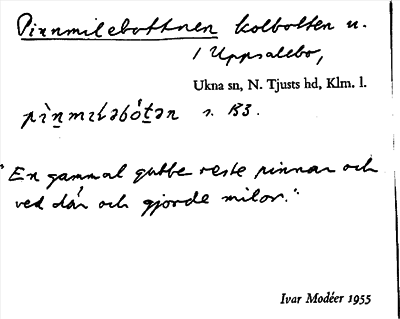 Pinnmilebottnen kolbotten n.
i Uppsalebo,
Ukna sn, N. Tjusts hd, Klm. l.
s. B3.
"En gammal gubbe reste pinnar och
ved där och gjorde milor."
Ivar Modéer 1955